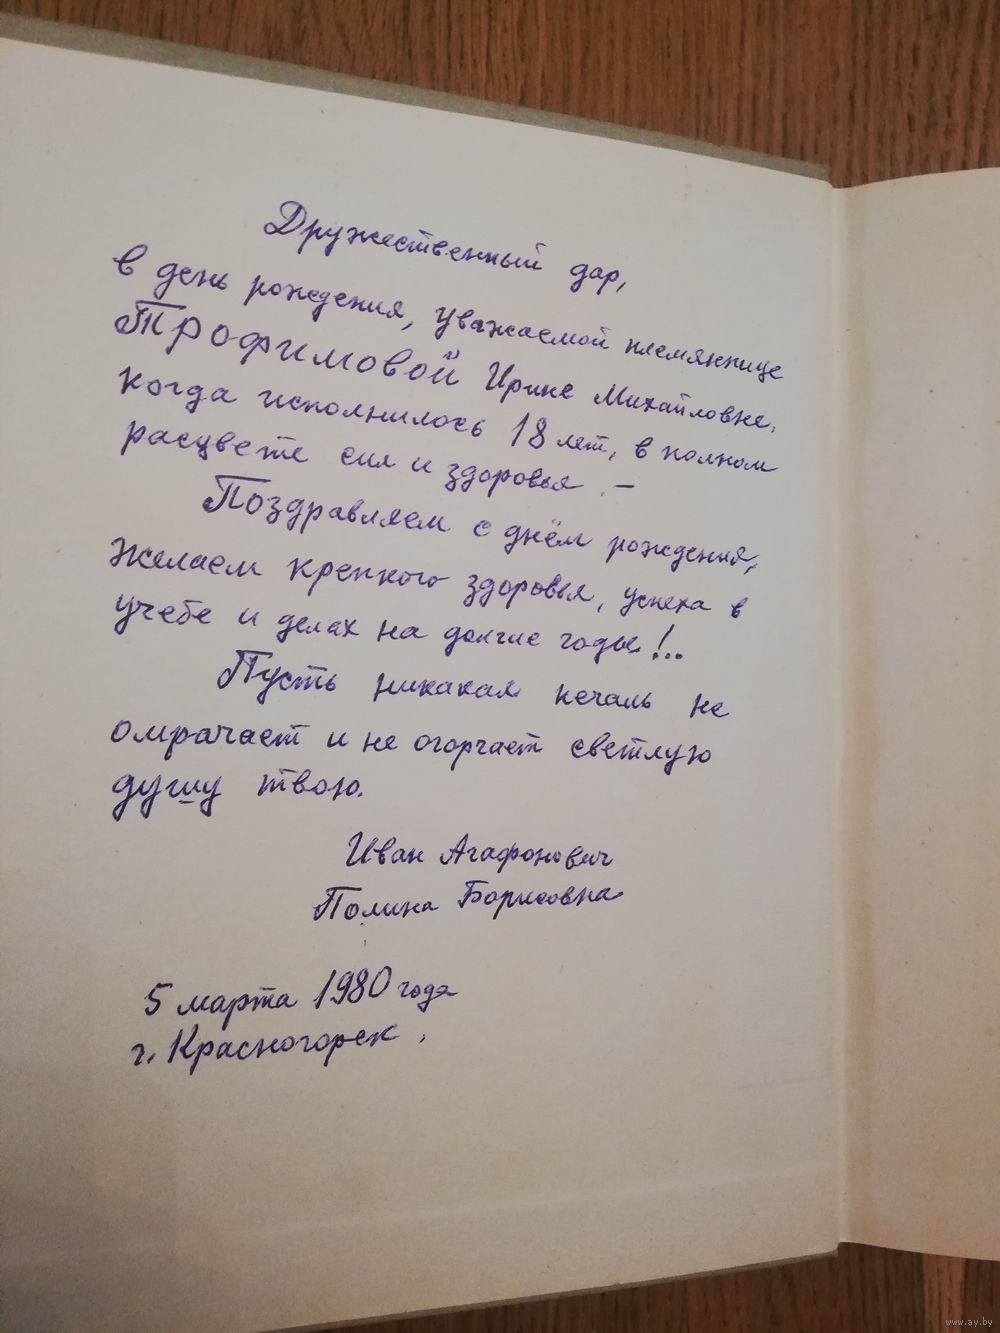 Дружественный дар,
в день рождения, уважаемой племяннице
Трофимовой Ирине Михайловне,
когда исполнилось 18 лет, в полном
расцвете сил и здоровья –
Поздравляем с днём рождения,
желаем крепкого здоровья, успеха в
учебе и делах на долгие годы!..
Пусть никакая печаль не
омрачает и не огорчает светлую
душу твою.
Иван Агафонович
Полина Борисовна
5 марта 1980 года
г. Красногорск.
www.ay.by